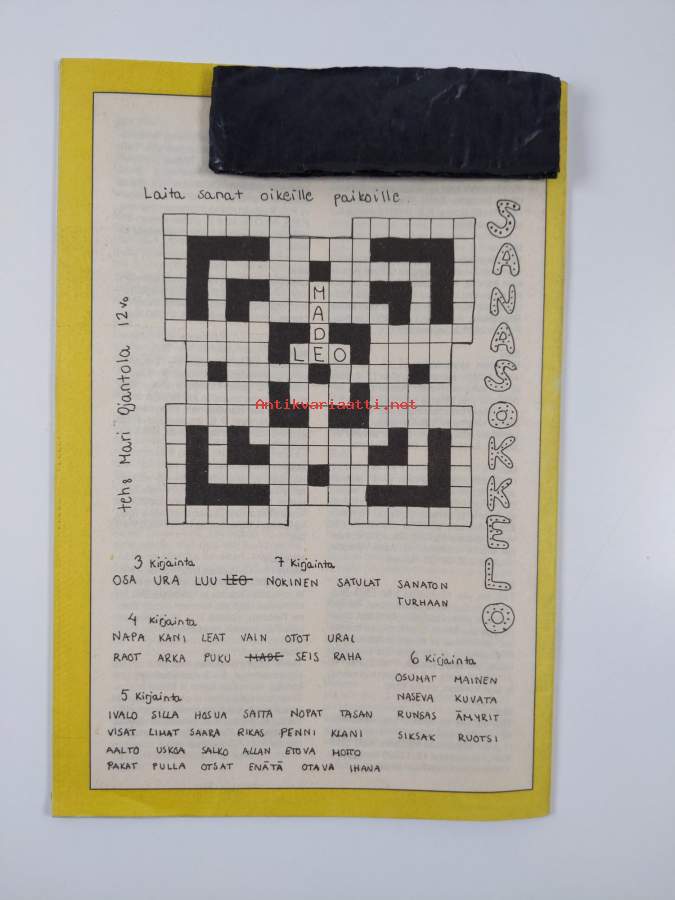 Laita sanat oikeille paikoille.
SANASOKKELO
tehs Mari Ojantola 12 v.
M
A
D
LEO
Antikvariaatti.net
3 kirjainta
OSA URA LUU LEO
7 kirjainta
NOKINEN SATULAT SANATON
TURHAAN
4 kirjainta
NAPA KANI LEAT VAIN OTOT URAL
RAOT ARKA PUKU MADE SEIS RAHA
6 kirjainta
OSUMAT MAINEN
NASEVA KUVATA
RUNSAS ÄMYRIT
SIKSAK RUOTSI
5 kirjainta
IVALO SILLA HOSUA SAITA NOPAT TASAN
VISAT LIMAT SAARA RIKAS PENNI KLANI
AALTO USKOA SALKO ALLAN ETOVA MOITO
PAKAT PULLA OTSAT ENÄTÄ OTAVA IHANA